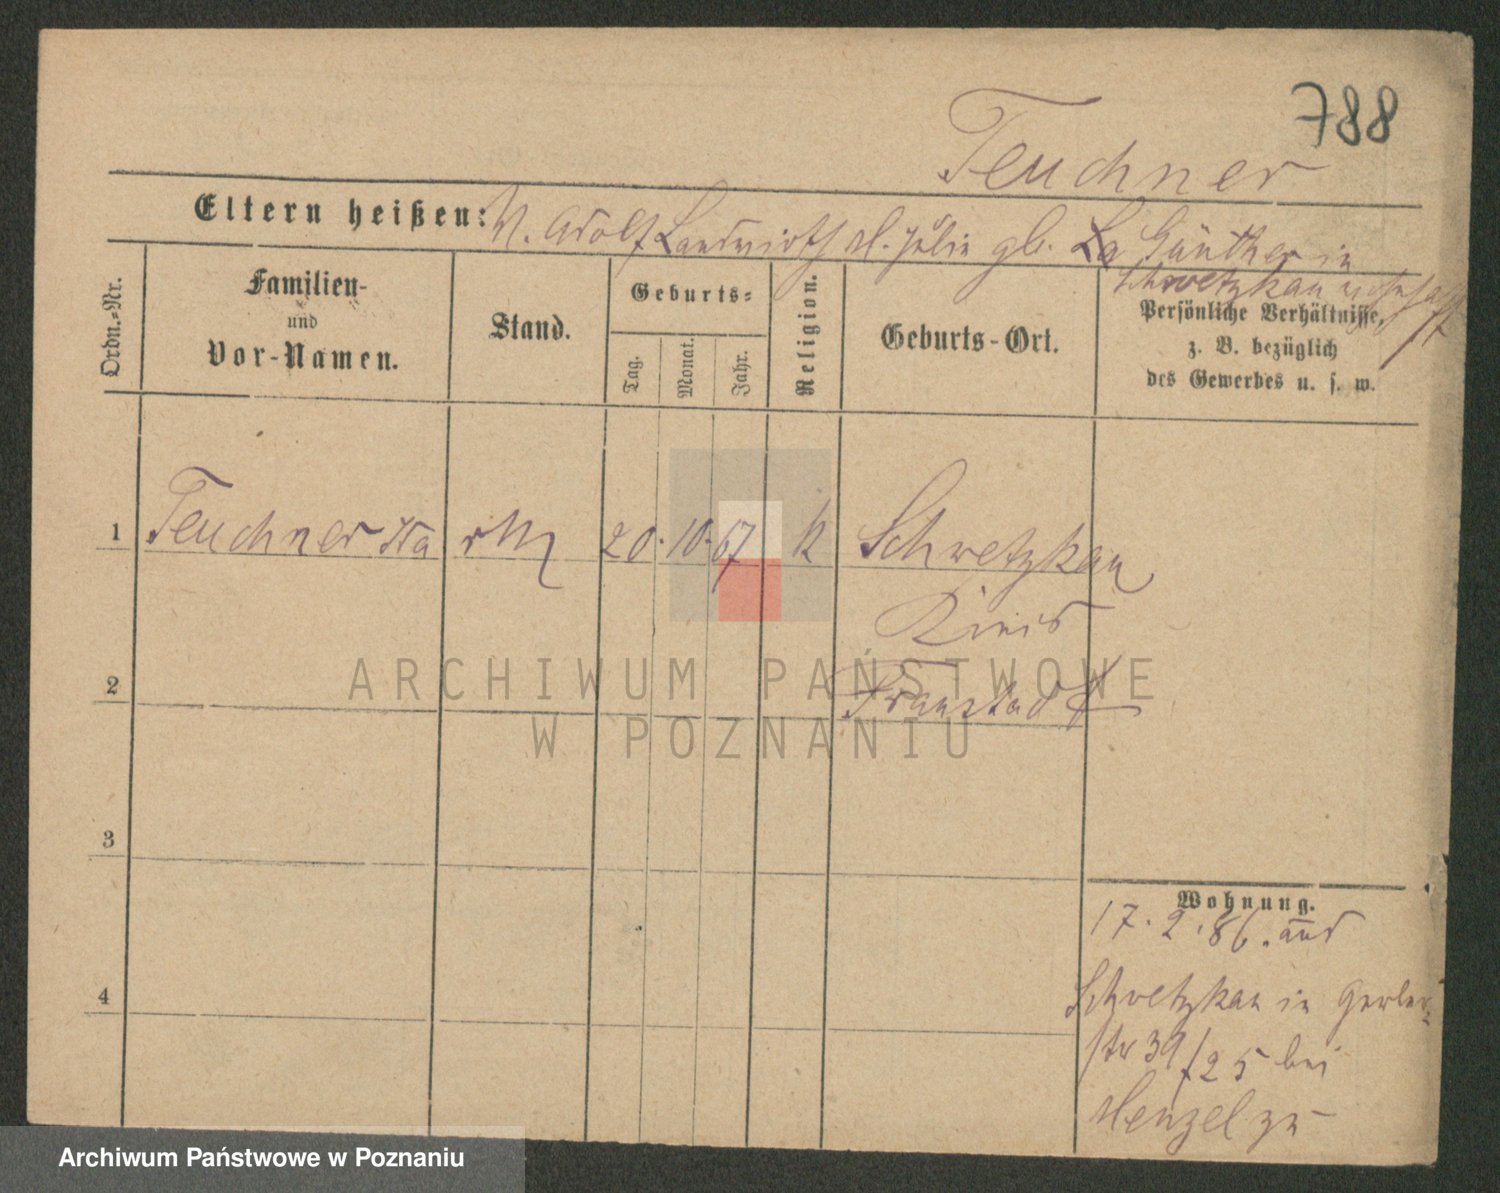 788
Teuchner
Eltern heißen: V. Adolf Landwirth M. Julie gb. Günther in
Schwetzkau wohnhaft
Ordn.-Nr.
Familien-
und
Vor-Namen.
Stand.
Geburts-
Tag.
Monat.
Jahr.
Religion.
Geburts-Ort.
Persönliche Verhältnisse,
z. B. bezüglich
des Gewerbes u. s. w.
1 Teuchner 20. 10. 67 k Schwetzkau
Kreis
2 Fraustadt
3
4
Wohnung.
17. 2. 86. aus
Schwetzkau in Gerber-
str 39/25 bei
Menzel zu
ARCHIWUM PAŃSTWOWE
W POZNANIU
Archiwum Państwowe w Poznaniu